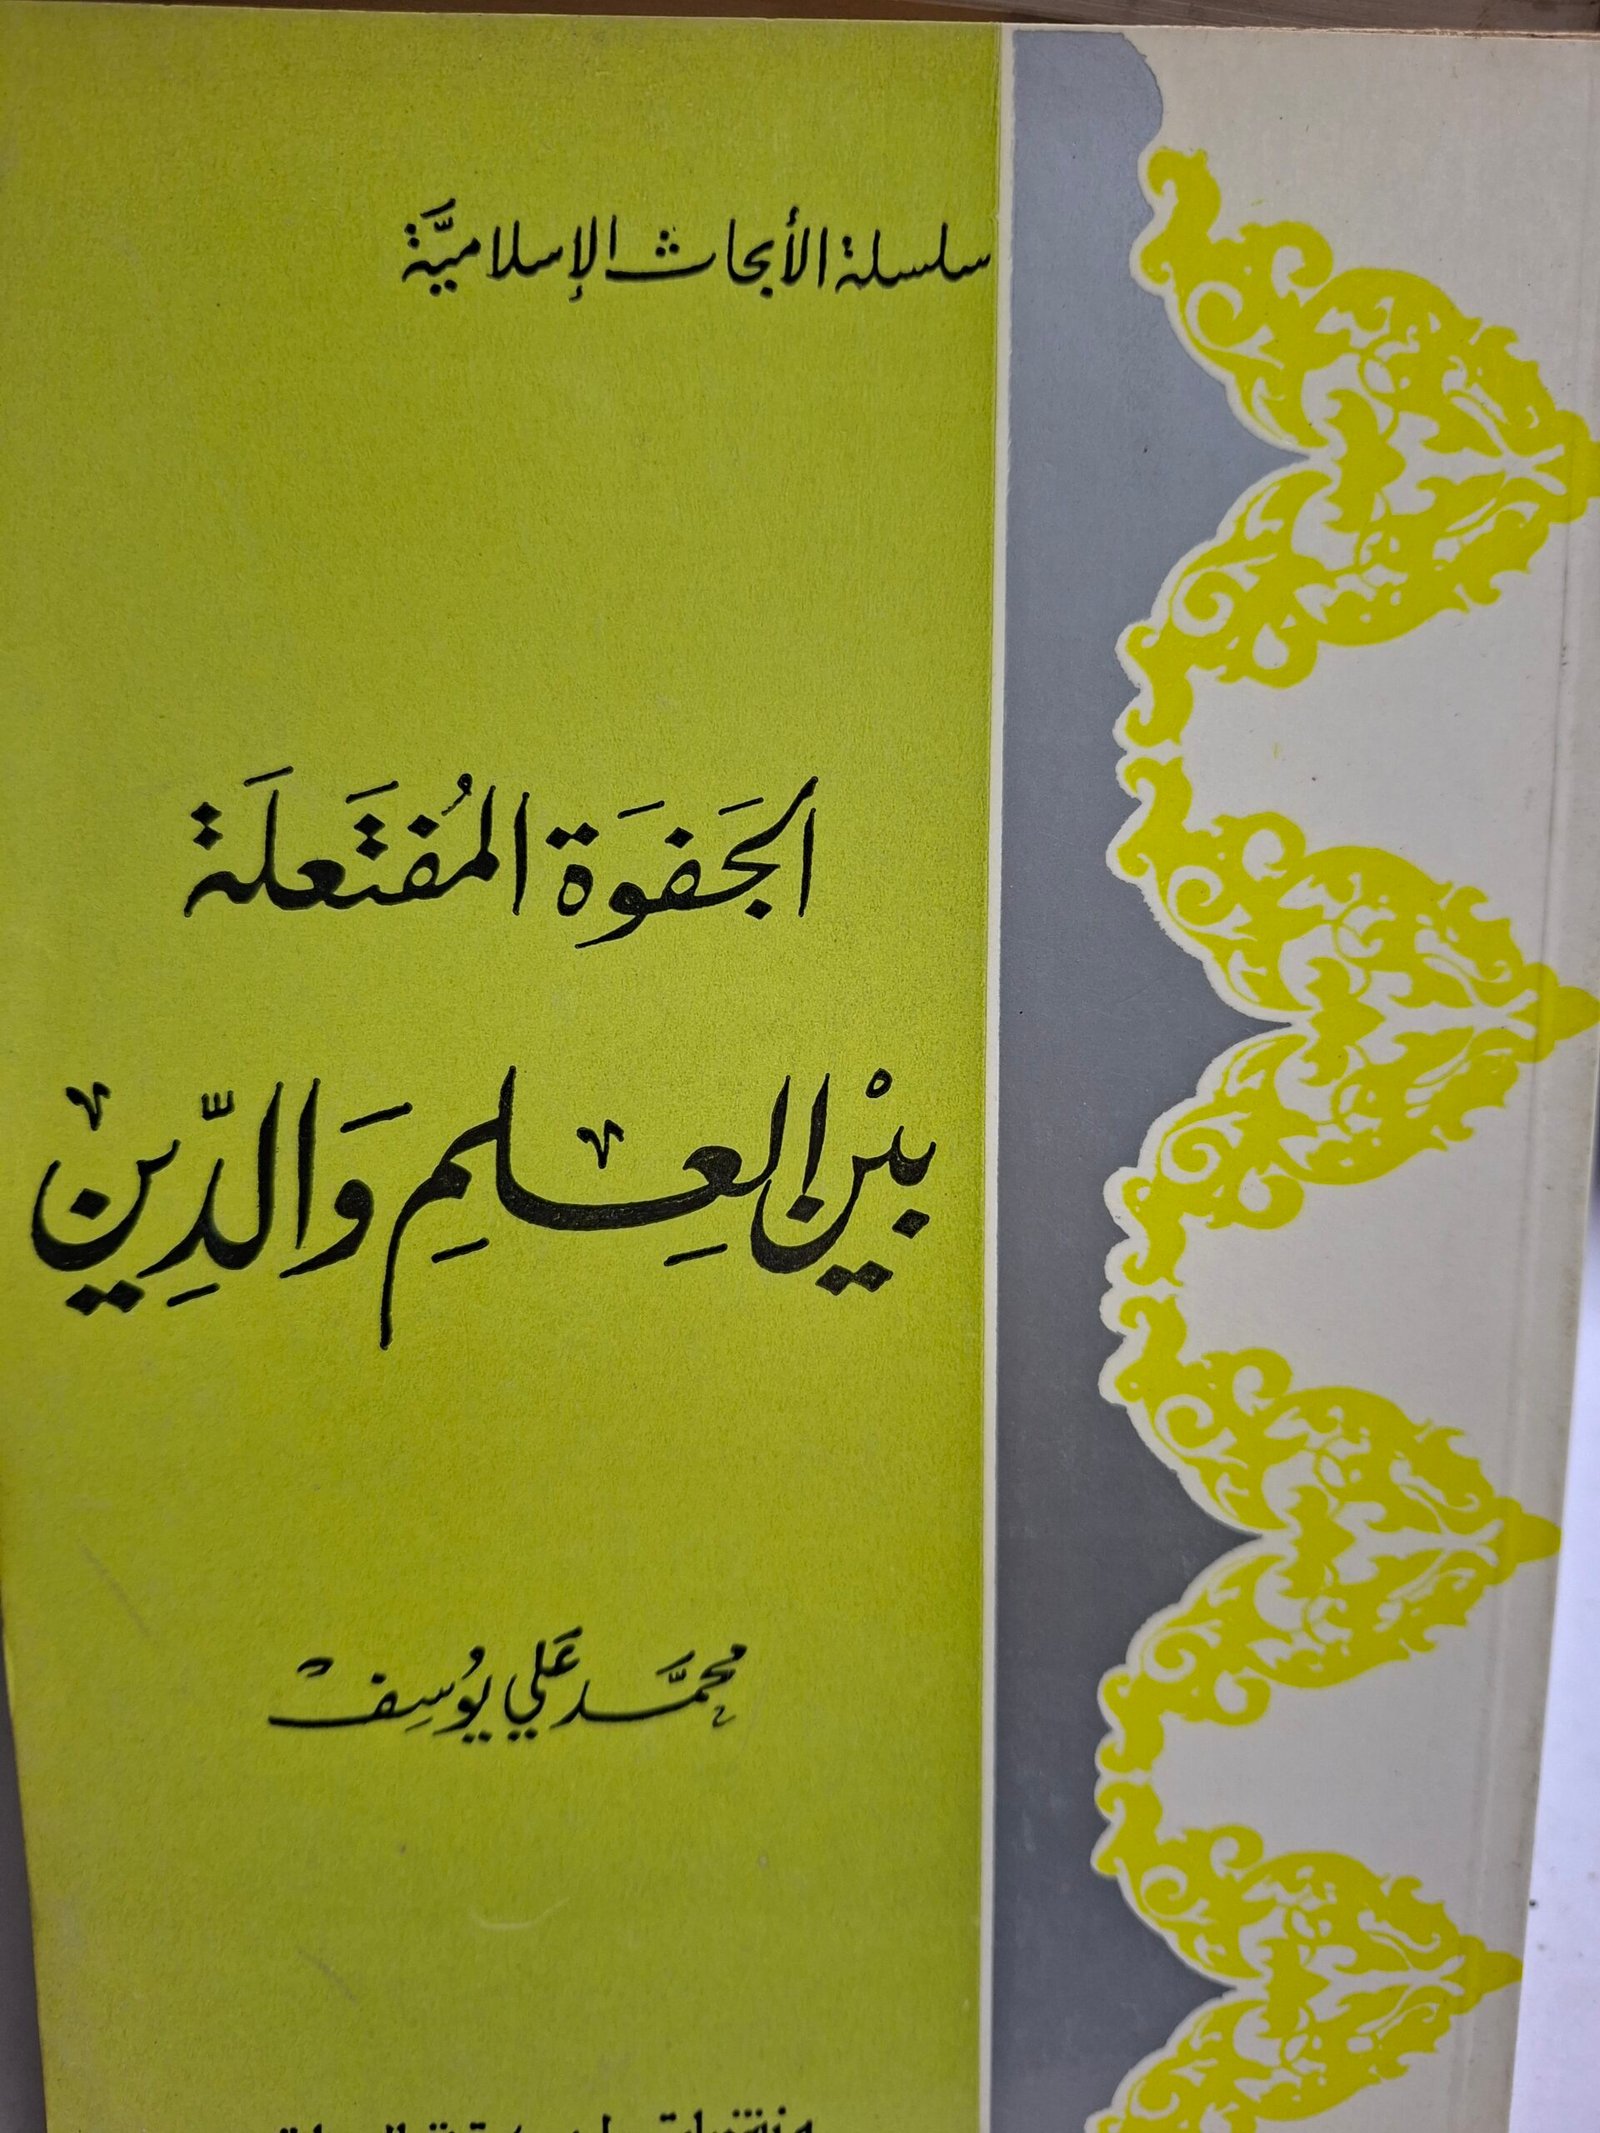 سلسلة الأبحاث الإسلاميَّة
الجَفوَة المُفتَعلَة
بيْن العِلمِ وَالدِّين
محمَّد عَلي يوُسِف
منشورات